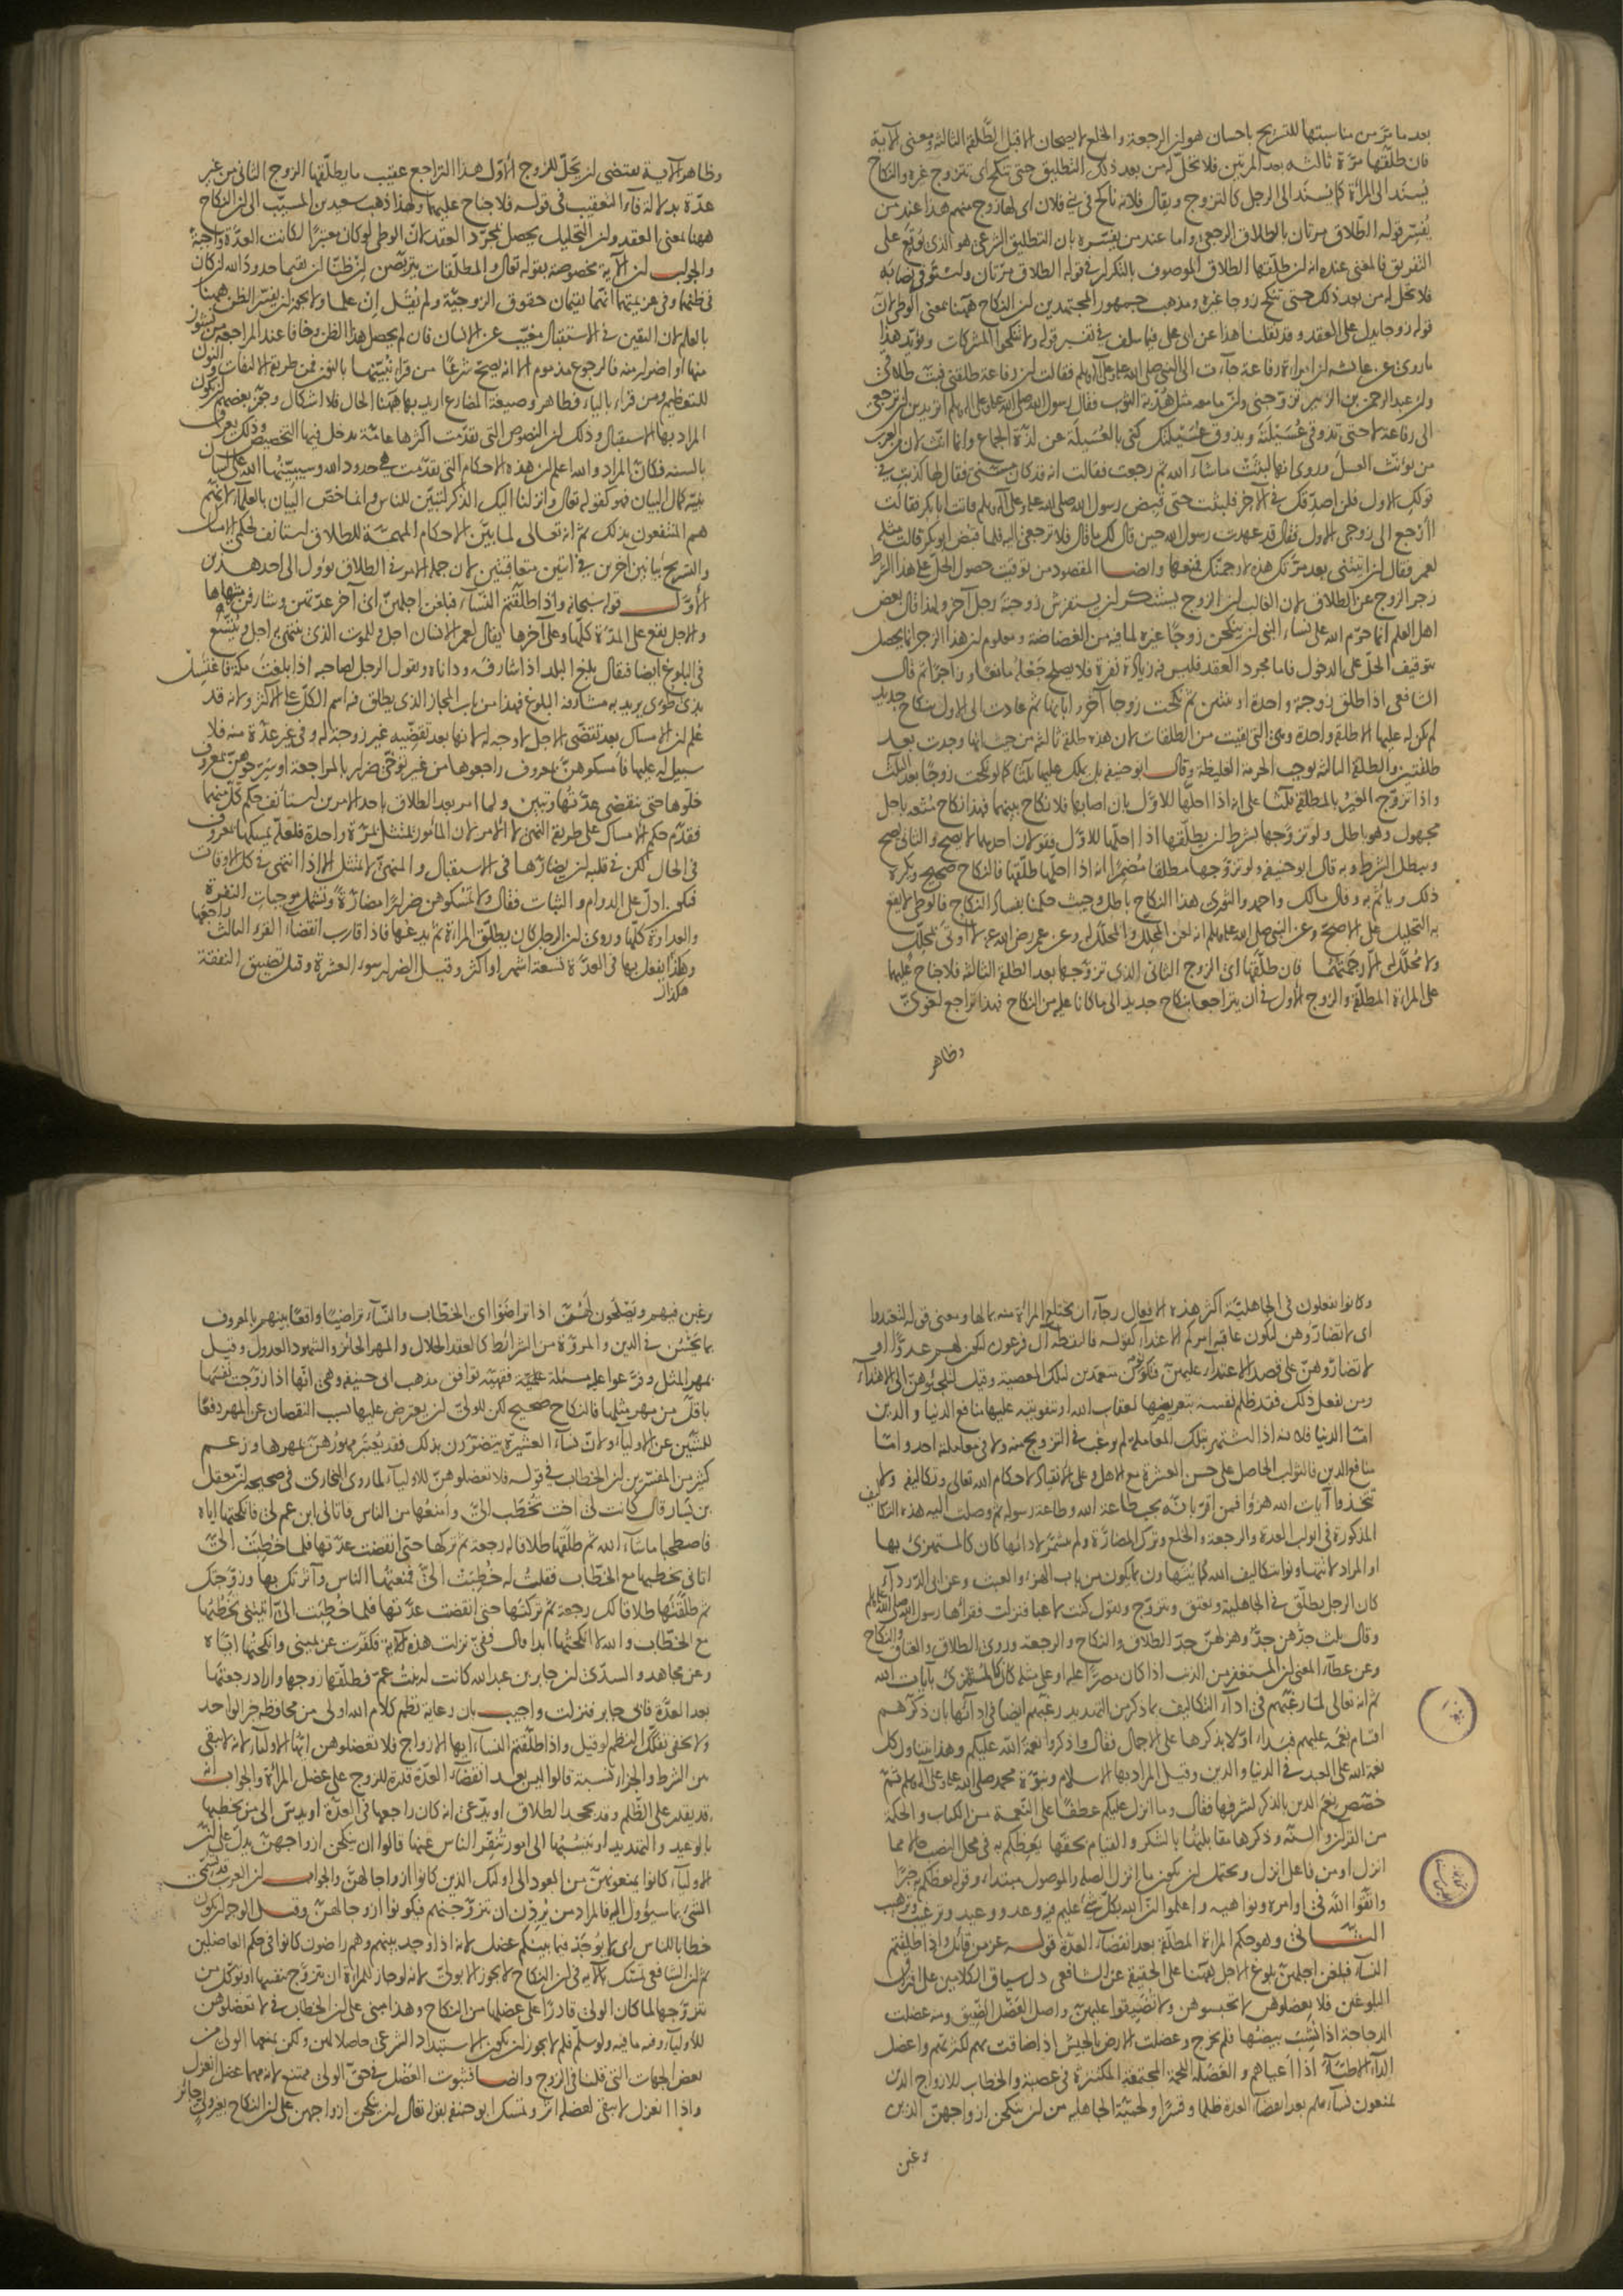 بعد ما مر من مناسبتها للتسريح باحسان هو ان الرجعة والخلع لا يصحان الا قبل الطلقة الثالثة ومعنى الآية
فان طلقها مرة ثالثة بعد المرتين فلا تحل له من بعد ذلك التطليق حتى تنكح اى تتزوج غيره والنكاح
يُسند الى المرأة كما يُسند الى الرجل كالتزوج ويقال فلانة ناكح فى بنى فلان اى لها زوج منهم هذا عند من
يُفسّر قوله الطلاق مرتان بالطلاق الرجعى واما عند من يفسّره بان التطليق الشرعى هو الذى يُوقَع على
التفريق فالمعنى عنده انه ان طلقها الطلاق الموصوف بالتكرار فى قوله الطلاق مرتان واستوفى نصابه
فلا تحل له من بعد ذلك حتى تنكح زوجا غيره ومذهب جمهور المجتهدين ان النكاح ههنا بمعنى الوطى لان
قوله زوجا يدل على العقد وقد نقلنا هذا عن ابى على فيما سلف فى تفسير قوله ولا تنكحوا المشركات ويؤيد هذا
ماروى عن عائشه ان امراة رفاعة جآءت الى النبى صلى الله عليه وعلى آله وسلم فقالت ان رفاعة طلقنى فبت طلاقى
وان عبد الرحمن بن الزبير تزوجنى وان ما معه مثل هُدْبة الثوب فقال رسول الله صلى الله عليه وعلى آله وسلم اتريدين ان ترجعى
الى رفاعة لا حتى تذوقى عُسَيْلَتَهُ ويذوق عُسَيْلتك كنى بالعُسَيلة عن لذة الجماع وانما انث لان من العرب
من يؤنث العسل وروى انها لبثت ماشآء الله ثم رجعت فقالت انه قد كان مسّنى فقال لها كذبت فى
قولك الاول فلن اصدّقك فى الآخر فلبثت حتى قبض رسول الله صلى الله عليه وعلى آله وسلم فاتت ابا بكر فقالت
أأرجع الى زوجى الاول فقال قد عهدت رسول الله حين قال لك ما قال فلا ترجعى اليه فلما قبض ابو بكر قالت مثله
لعمر فقال لئن اتيتنى بعد مرّتك هذه لارجمنّك فمنعها وايضا المقصود من توقيف حصول الحلّ على هذا الشرط
زجر الزوج عن الطلاق لان الغالب ان الزوج يستنكر ان يستفرش زوجته رجل آخر ولهذا قال بعض
اهل العلم انما حرّم الله على نساء النبى ان ينكحن زوجًا غيره لما فيه من الغضاضة ومعلوم ان هذا الزجر انما يحصل
بتوقيف الحلّ على الدخول فاما مجرد العقد فليس فيه زيادة نفرة فلا يصلح جَعْله مانعًا و زاجرًا ثم قال
الشافعى اذا طلق زوجته واحدة او ثنتين ثم نكحت زوجا آخر واصابها ثم عادت الى الاول بنكاح جديد
لم يكن له عليها الا طلقة واحدة وهى التى بقيت من الطلقات لان هذه طلقة ثالثة من حيث انها وجدت بعد
طلقتين والطلقة الثالثة توجب الحرمة الغليظة وقال ابو حنيفة بل يملك عليها ثلثًا كما لو نكحت زوجًا بعد الثلث
واذا تزوج الغير بالمطلقة ثلثا على انه اذا احلّها للاوّل بان اصابها فلا نكاح بينهما فهذا نكاح متعة باجل
مجهول وهو باطل ولو تزوجها بشرط ان يطلّقها اذا احلّها للاوّل فقولان احدهما لا يصح والثانى يصح
ويبطل الشرط وبه قال ابو حنيفة ولو تزوجها مطلقا مُضمِرًا انه اذا احلّها طلّقها فالنكاح صحيح ويكره
ذلك ويأثم به وقال مالك واحمد والثورى هذا النكاح باطل وحيث حكمنا بفساد النكاح فالوطى لا يقع
به التحليل على الاصح وعن النبى صلى الله عليه وسلم انه لعن المحلّل والمحلّل له وعن عمر رضى الله عنه لا اوتى بمحلّل
ولا مُحلَّل له الا رجمتهما فان طلّقها اى الزوج الثانى الذى تزوجها بعد الطلقة الثالثة فلا جناح عليهما
على المراءة المطلّقة والزوج الاول فى ان يتراجعا بنكاح جديد الى ما كانا عليه من النكاح فهذا تراجع لغوىّ
وظاهر
وظاهر الآية يقتضى ان يحلّ للزوج الاوّل هذا التراجع عقيب ما يطلّقها الزوج الثانى من غير
عدّة بدلالة فآء التعقيب فى قوله فلا جناح عليهما ولهذا ذهب سعيد بن المسيّب الى ان النكاح
ههنا بمعنى العقد وان التحليل يحصل بمجرّد العقد لان الوطى لو كان معتبرًا لكانت العدّة واجبة
والجواب ان الآية مخصوصة بقوله تعالى والمطلّقات يتربّصن ان ظنّا ان يقيما حدود الله ان كان
فى ظنهما وفى عزيمتهما انهما يقيمان حقوق الزوجيّة ولم يُقَل ان علما ولا يجوز ان يفسّر الظن ههنا
بالعلم لان اليقين فى الاستقبال مغيّب عن الانسان فان لم يحصل هذا الظن وخافا عند المراجعة من نشوز
منها او اضرار منه فالرجوع مذموم الا انه يصحّ شرعًا من قرأ نُبيّنها بالنون فمن طريقة الالتفات والنون
للتعظيم ومن قراء بالياء فظاهر وصيغة المضارع اريد بها ههنا الحال فلا اشكال وجوّز بعضهم ان يكون
المراد بها الاستقبال وذلك ان النصوص التى تقدّمت اكثرها عامّة يدخل فيها التخصيص وذلك يُعرف
بالسنة فكان المراد والله اعلم ان هذه الاحكام التى تقدّمت هى حدود الله وسيبيّنها الله على لسان
نبيّه كمال البيان فهو كقوله تعالى وانزلنا اليك الذكر لتبيّن للناس وانما خصّ البيان بالعلمآء لانّهم
هم المنتفعون بذلك ثم انه تعالى لما بيّن الاحكام المهمّة للطلاق استأنف لحكمى الامساك
والتسريح بيانين آخرين فى آيتين متعاقبتين لان جملة الامر فى الطلاق يؤول الى احد هذين
الاوّل قوله سبحانه واذا طلّقتم النّسآء فبلغن اجلهنّ اى آخر عدّتهنّ وشارفن منتهاها
والاجل يقع على المدّة كلّها وعلى آخرها يقال لعمر الانسان اجل وللموت الذى ينتهى به اجل ويتّسع
فى البلوغ ايضا فيقال بلغ البلد اذا شارفه وداناه ويقول الرجل لصاحبه اذا بلغتَ مكّة فاغتسل
بذى طُوى يريد به مشارفة البلوغ فهذا من باب المجاز الذى يطلق فيه اسم الكلّ على الاكثر ولانه قد
عُلم ان الامساك بعد تقضّى الاجل لا وجه له لانها بعد تقضّيه غير زوجة له وفى غير عدّة منه فلا
سبيل له عليها فامسكوهنّ بمعروف راجعوها من غير توخّى ضرار بالمراجعة او سَرِّحُوهُنّ بمعروف
خلّوها حتى ينقضى عدّتها وتبين ولما امر بعد الطلاق باحد الامرين استأنف حكم كلّ منهما
فقدّم حكم الامساك على طريقة النهى لا الامر لان المأمور يمتثل لمرّة واحدة فلعلّه يمسكها بمعروف
فى الحال لكن فى قلبه ان يضارّها فى الاستقبال والمنهىّ لا يمتثل الا اذا انتهى فى كل الاوقات
فيكون ادلّ على الدوام والثبات فقال ولا تمسكوهن ضرارًا مضارّة وتشمل موجبات النفرة
والعداوة كلّها وروى ان الرجل كان يطلّق المراءة ثم يدعها فاذا قارب انقضاء القرء الثالث راجعها
وهكذا يفعل بها فى العدّة تسعة اشهر او اكثر وقيل الضرار سوء العشرة وقيل تضييق النفقة
هكذا
وكانوا يفعلون فى الجاهليّة اكثر هذه الافعال رجآء ان تختلع المراءة منه بمالها ومعنى قوله لتعتدوا
اى لا تضارّوهن ليكون عاقبة امركم الاعتداء كقوله فالتقطه آل فرعون ليكون لهم عدوّا او
لا تضارّوهنّ على قصد الاعتدآء عليهنّ فتكونون متعمّدين لتلك المعصية وقيل لتلجئوهنّ الى الافتداء
ومن يفعل ذلك فقد ظلم نفسه بتعريضها لعقاب الله او بتفويته عليها منافع الدنيا والدين
امّا الدنيا فلانه اذا اشتهر بتلك المعاملة لم يرغب فى التزويج منه ولا فى معاملته احد وامّا
منافع الدين فالثواب الحاصل على حسن العشرة مع الاهل وعلى الانقياد لاحكام الله تعالى وتكاليفه ولا
تتخذوا آيات الله هزؤا فمن اقرّ بانّه يجب طاعة الله وطاعة رسوله ثم وصلت اليه هذه التكاليف
المذكورة فى ابواب العدة والرجعة والخلع وترك المضارّة ولم يتشمّر لادائها كان كالمستهزئ بها
او المراد لا تتهاونوا بتكاليف الله كما يُتهاون بما يكون من باب الهزء والعبث وعن ابى الدّرداء
كان الرجل يطلّق فى الجاهلية ويعتق ويتزوّج ويقول كنت لاعبا فنزلت فقراها رسول الله صلى الله عليه وسلم
وقال ثلث جِدُّهنّ جِدٌّ وهزلهنّ جِدّ الطلاق والنكاح والرجعة وروى الطلاق والعتاق والنكاح
وعن عطآء المعنى ان المستغفر من الذنب اذا كان مصرّا عليه او على مثله كان كالمستهزئ بآيات الله
ثم انه تعالى لمّا رغّبهم فى ادآء التكاليف بما ذكر من التهديد رغّبهم ايضا فى ادآئها بان ذكّرهم
اقسام نِعَمه عليهم فبداء اوّلا بذكرها على الاجمال فقال واذكروا نعمة الله عليكم وهذا يتناول كل
نعمة لله على العبد فى الدنيا والدين وقيل المراد بها الاسلام ونبوّة محمد صلى الله عليه وعلى آله وسلم ثم
خصّص نعم الدين بالذكر لشرفها فقال وما انزل عليكم عطفًا على النّعمة من الكتاب والحكمة
من القرآن والسنّة وذكرها مقابلتها بالشكر والقيام بحقّها يعظكم به فى محل النصب حالا مما
انزل او من فاعل انزل ويحتمل ان يكون ما انزل الصلة والموصول مبتداء وقوله يعظكم به خبرًا
واتّقوا الله فى اوامره ونواهيه واعلموا ان الله بكلّ شئ عليم فيه وعد ووعيد وترغيب وترهيب
الثانى وهو حكم المراءة المطلّقة بعد انقضآء العدّة قوله عز من قائل واذا طلّقتم
النّسآء فبلغن اجلهنّ بلوغ الاجل ههنا على الحقيقة عن الشافعى دل سياق الكلامين على افتراق
البلوغين فلا تعضلوهن لا تحبسوهن ولا تُضيّقوا عليهنّ واصل العَضْل الضّيق ومنه عضلت
الدجاجة اذا نَشِبَ بيضُها فلم يخرج وعضلت الارض بالجيش اذا ضاقت بهم لكثرتهم واعضل
الدّآء الاطبّآء اذا اعياهم والعَضَلة اللحمة المجتمعة المكتنزة فى عصبة والخطاب للازواج الذين
يمنعون نسآءهم بعد انقضآء العدة ظلما وقسرًا ولحميّة الجاهلية من ان ينكحن ازواجهنّ الذين
يرغبن
يرغبن فيهم ويَصْلحون لَهُنّ اذا تراضَوْا اى الخطّاب والنّسآء تراضيًا واقعًا بينهم بالمعروف
بما يَحْسُن فى الدين والمروّة من الشرائط كالعقد الحلال والمهر الجائز والشهود العدول وقيل
بمهر المثل وفرّعوا عليه مسئلة فقهيّة توافق مذهب ابى حنيفة وهى انّها اذا زوّجت نفسها
باقلّ من مهر مثلها فالنكاح صحيح لكن للولىّ ان يعترض عليها بسبب النقصان عن المهر دفعًا
للشّين عن الاوليآء ولانّ نسآء العشيرة يتضرّرن بذلك فقد يُعتبر مهورُهنّ بمهرها وزعم
كثير من المفسّرين ان الخطاب فى قوله فلا تعضلوهنّ للاوليآء لما روى البخارى فى صحيحه ان معقل
بن يسار قال كانت لى اخت تُخطَب الىّ وامنعُها من الناس فاتانى ابن عم لى فانكحتها اياه
فاصطحبا ماشآء الله ثم طلّقها طلاقا له رجعة ثم تركها حتى انقضت عدّتها فلما خُطِبَتْ الىّ
اتانى يخطبها مع الخطّاب فقلتُ له خُطِبَتْ الىّ فمنعتُها الناس وآثرتك بها وزوّجتك
ثم طلّقتَها طلاقا لك رجعة ثم تركتَها حتى انقضت عدّتها فلما خُطِبَت الىّ اتيتنى تخطُبُها
مع الخطّاب والله لا انكحتُكها ابدا قال ففىّ نزلت هذه الآية فكفّرت عن يمينى وانكحتُها ايّاه
وعن مجاهد والسدّى ان جابر بن عبد الله كانت له بنتُ عمّ فطلّقها زوجها واراد رجعتُها
بعد العدّة فابى جابر فنزلت واجيب بان رعاية نظم كلام الله اولى من محافظة خبر الواحد
ولا يخفى تفكّك النظم لو قيل واذا طلّقتم النسآء ايها الازواج فلا تعضلوهن ايّها الاوليآء لانه لا يبقى
بين الشرط والجزاء نسبة قالوا ليس بعد انقضاء العدّة قدرة للزوج على عضل المرأة والجواب انه
قد يقدر على الظّلم وقد يجحد الطلاق او يدّعى انه كان راجعها فى العدّة او يدسّ الى من يخطبها
بالوعيد والتهديد او ينسبها الى امور تُنفّر الناس عنها قالوا ان ينكحن ازواجهنّ يدلّ على انّ
الاوليآء كانوا يمنعونهنّ من العود الى اولئك الذين كانوا ازواجا لهنّ والجواب ان العرب قد تسمّى
الشئ بما يؤول اليه فالمراد من يردن ان يتزوّجنهم فيكونوا ازواجا لهنّ وقيل الوجه ان يكون
خطابا للناس اى لا يُوجَد فيما بينكم عضل لانه اذا وجد بينهم وهم راضون كانوا فى حكم العاضلين
ثم ان الشافعى تمسّك بالآية فى ان النكاح لا يجوز الا بولىّ لانه لو جاز للمراءة ان تتزوّج بنفسها او توكّل من
يتزوّجها لما كان الولىّ قادرًا على عضلها من النكاح وهذا مبنى على ان الخطاب فى لا تعضلوهن
للاوليآء وفيه ما فيه ولو سلّم فلم لا يجوز ان يكون الاستبداد الشرعى حاصلا لهن ولكن يمنعها الولى من
بعض الجهات التى قلنا فى الزوج وايضا فثبوت العَضْل فى حقّ الولى ممتنع لانه مهما عضل انعزل
واذا انعزل لا يبقى لعضله اثر وتمسّك ابو حنيفة بقوله تعالى ان ينكحن ازواجهن على ان النكاح بغير ولىّ جائز